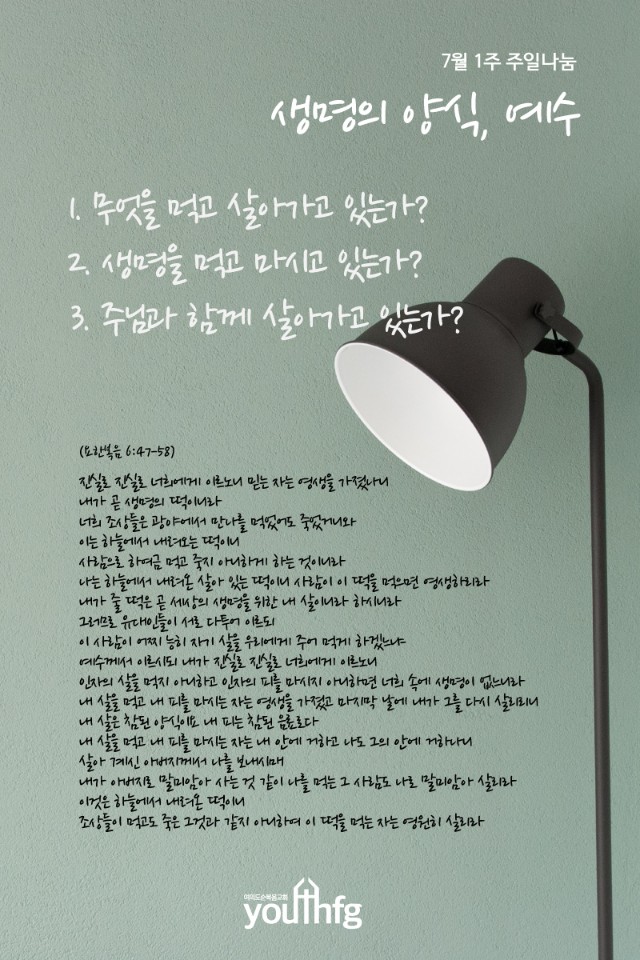 7월 1주 주일나눔
생명의 양식, 예수
1. 무엇을 먹고 살아가고 있는가?
2. 생명을 먹고 마시고 있는가?
3. 주님과 함께 살아가고 있는가?
(요한복음 6:47-58)
진실로 진실로 너희에게 이르노니 믿는 자는 영생을 가졌나니
내가 곧 생명의 떡이니라
너희 조상들은 광야에서 만나를 먹었어도 죽었거니와
이는 하늘에서 내려오는 떡이니
사람으로 하여금 먹고 죽지 아니하게 하는 것이니라
나는 하늘에서 내려온 살아 있는 떡이니 사람이 이 떡을 먹으면 영생하리라
내가 줄 떡은 곧 세상의 생명을 위한 내 살이니라 하시니라
그러므로 유대인들이 서로 다투어 이르되
이 사람이 어찌 능히 자기 살을 우리에게 주어 먹게 하겠느냐
예수께서 이르시되 내가 진실로 진실로 너희에게 이르노니
인자의 살을 먹지 아니하고 인자의 피를 마시지 아니하면 너희 속에 생명이 없느니라
내 살을 먹고 내 피를 마시는 자는 영생을 가졌고 마지막 날에 내가 그를 다시 살리리니
내 살은 참된 양식이요 내 피는 참된 음료로다
내 살을 먹고 내 피를 마시는 자는 내 안에 거하고 나도 그의 안에 거하나니
살아 계신 아버지께서 나를 보내시매
내가 아버지로 말미암아 사는 것 같이 나를 먹는 그 사람도 나로 말미암아 살리라
이것은 하늘에서 내려온 떡이니
조상들이 먹고도 죽은 그것과 같지 아니하여 이 떡을 먹는 자는 영원히 살리라
여의도순복음교회
youthfg